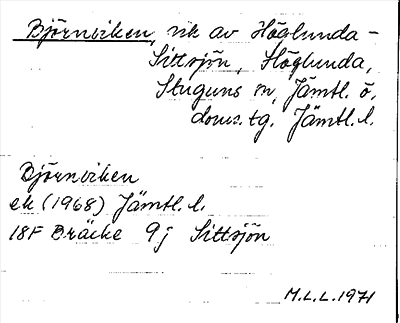 Björnviken, vik av Höglunda-
Sittsjön, Höglunda,
Stuguns sn, Jämtl. ö.
doms.tg. Jämtl.l.
Björnviken
ek (1968) Jämtl.l.
18F Bräcke 9j Sittsjön
M.L.L. 1971